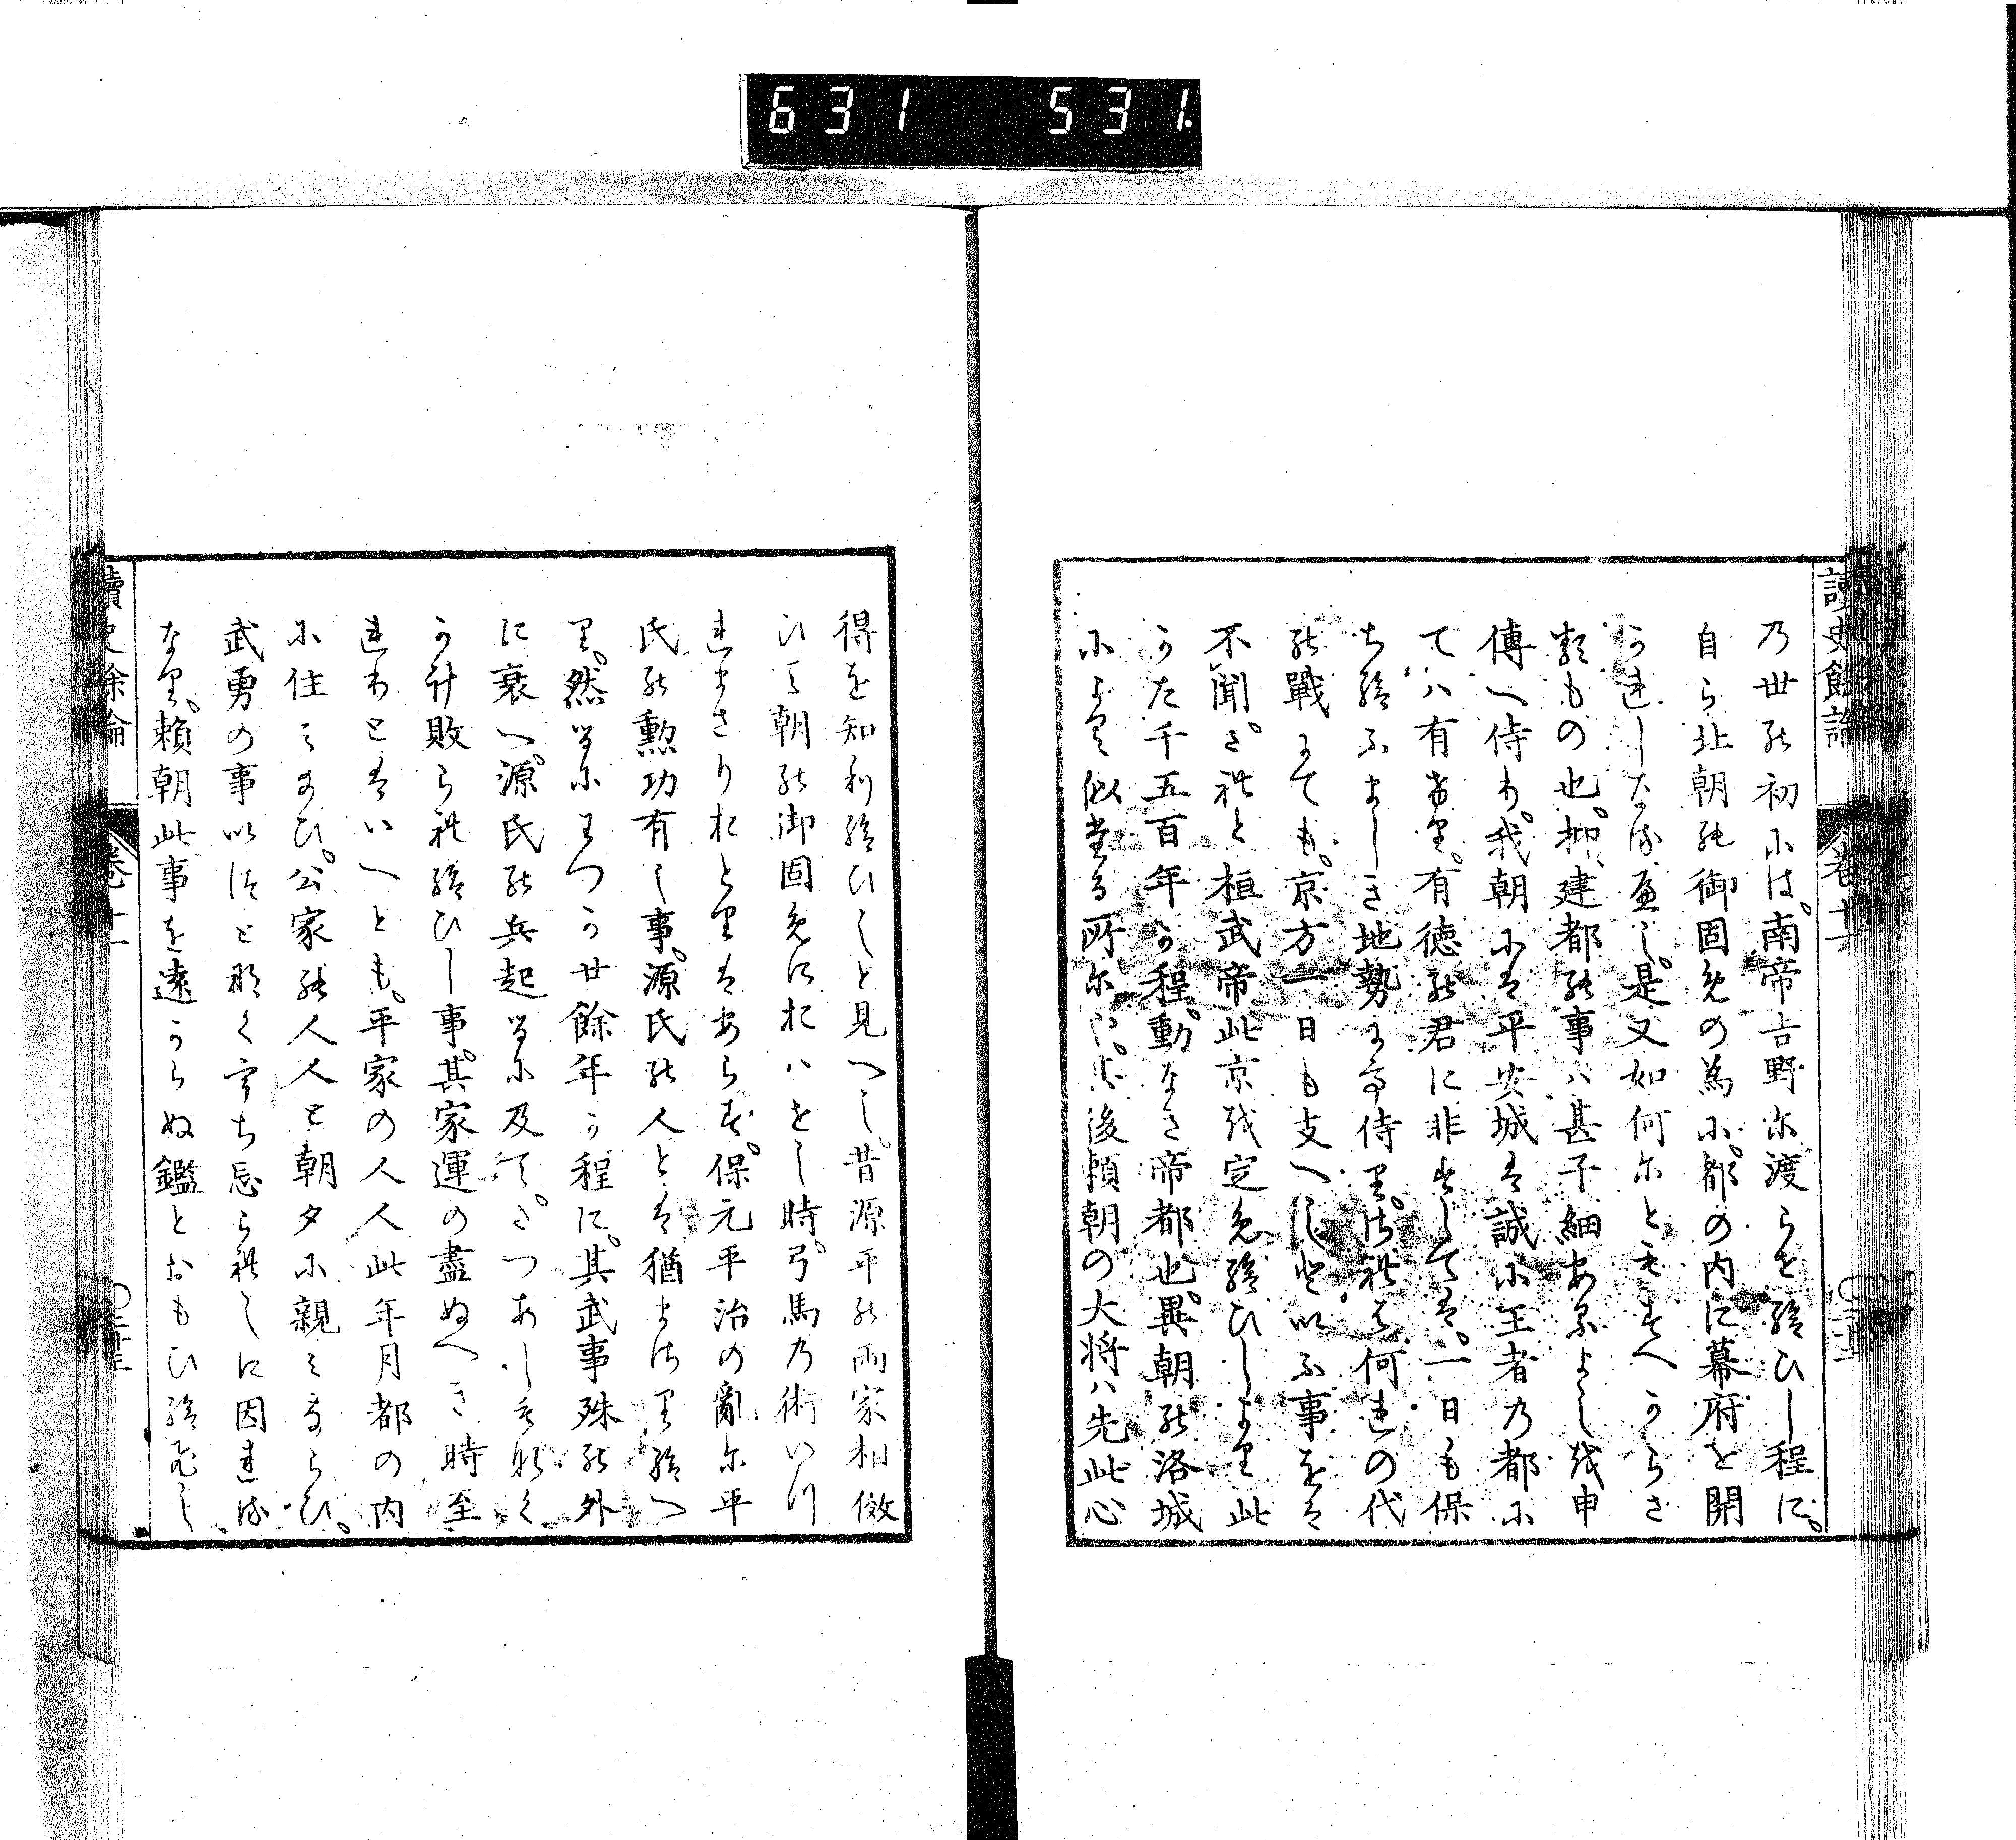 631 531
讀史餘論 卷十一
乃世能初には。南帝吉野に渡らせ給ひし程に。
自ら北朝能御固めの為に。都の内に幕府を開
かれしなるべし。是又如何にともすべからざ
るもの也。抑建都能事ハ甚子細あるよしを申
傳へ侍り。我朝には平安城は誠に王者乃都に
てハ有なり。有徳能君に非ずしては。一日も保
ち給ふまじき地勢にて侍り。されば何れの代
能戰にても。京方一日も支へしと以ふ事をは
不聞。されと桓武帝此京を定め給ひしより此
かた千五百年か程。動なき帝都也。異朝能洛城
によく似たる所にや。後頼朝の大将ハ先此心
得を知り給ひしと見へし。昔源平能両家相傚
ひて朝能御固めにおハせし時。弓馬乃術いつ
れまさりおとりはあらず。保元平治の亂に平
氏能勲功有し事。源氏能人とは猶まさり給へ
り。然るにわつか廿餘年か程に。其武事殊能外
に衰へ。源氏能兵起るに及て。さつあしもなく
う計敗られ給ひし事。其家運の盡ぬへき時至
れりとはいへとも。平家の人人此年月都の内
に住みまひ。公家能人人と朝夕に親みならひ。
武勇の事以つと那くうち忘られしに因れる
なり。頼朝此事を遠からぬ鑑とおもひ給ひし
讀史餘論 卷十一